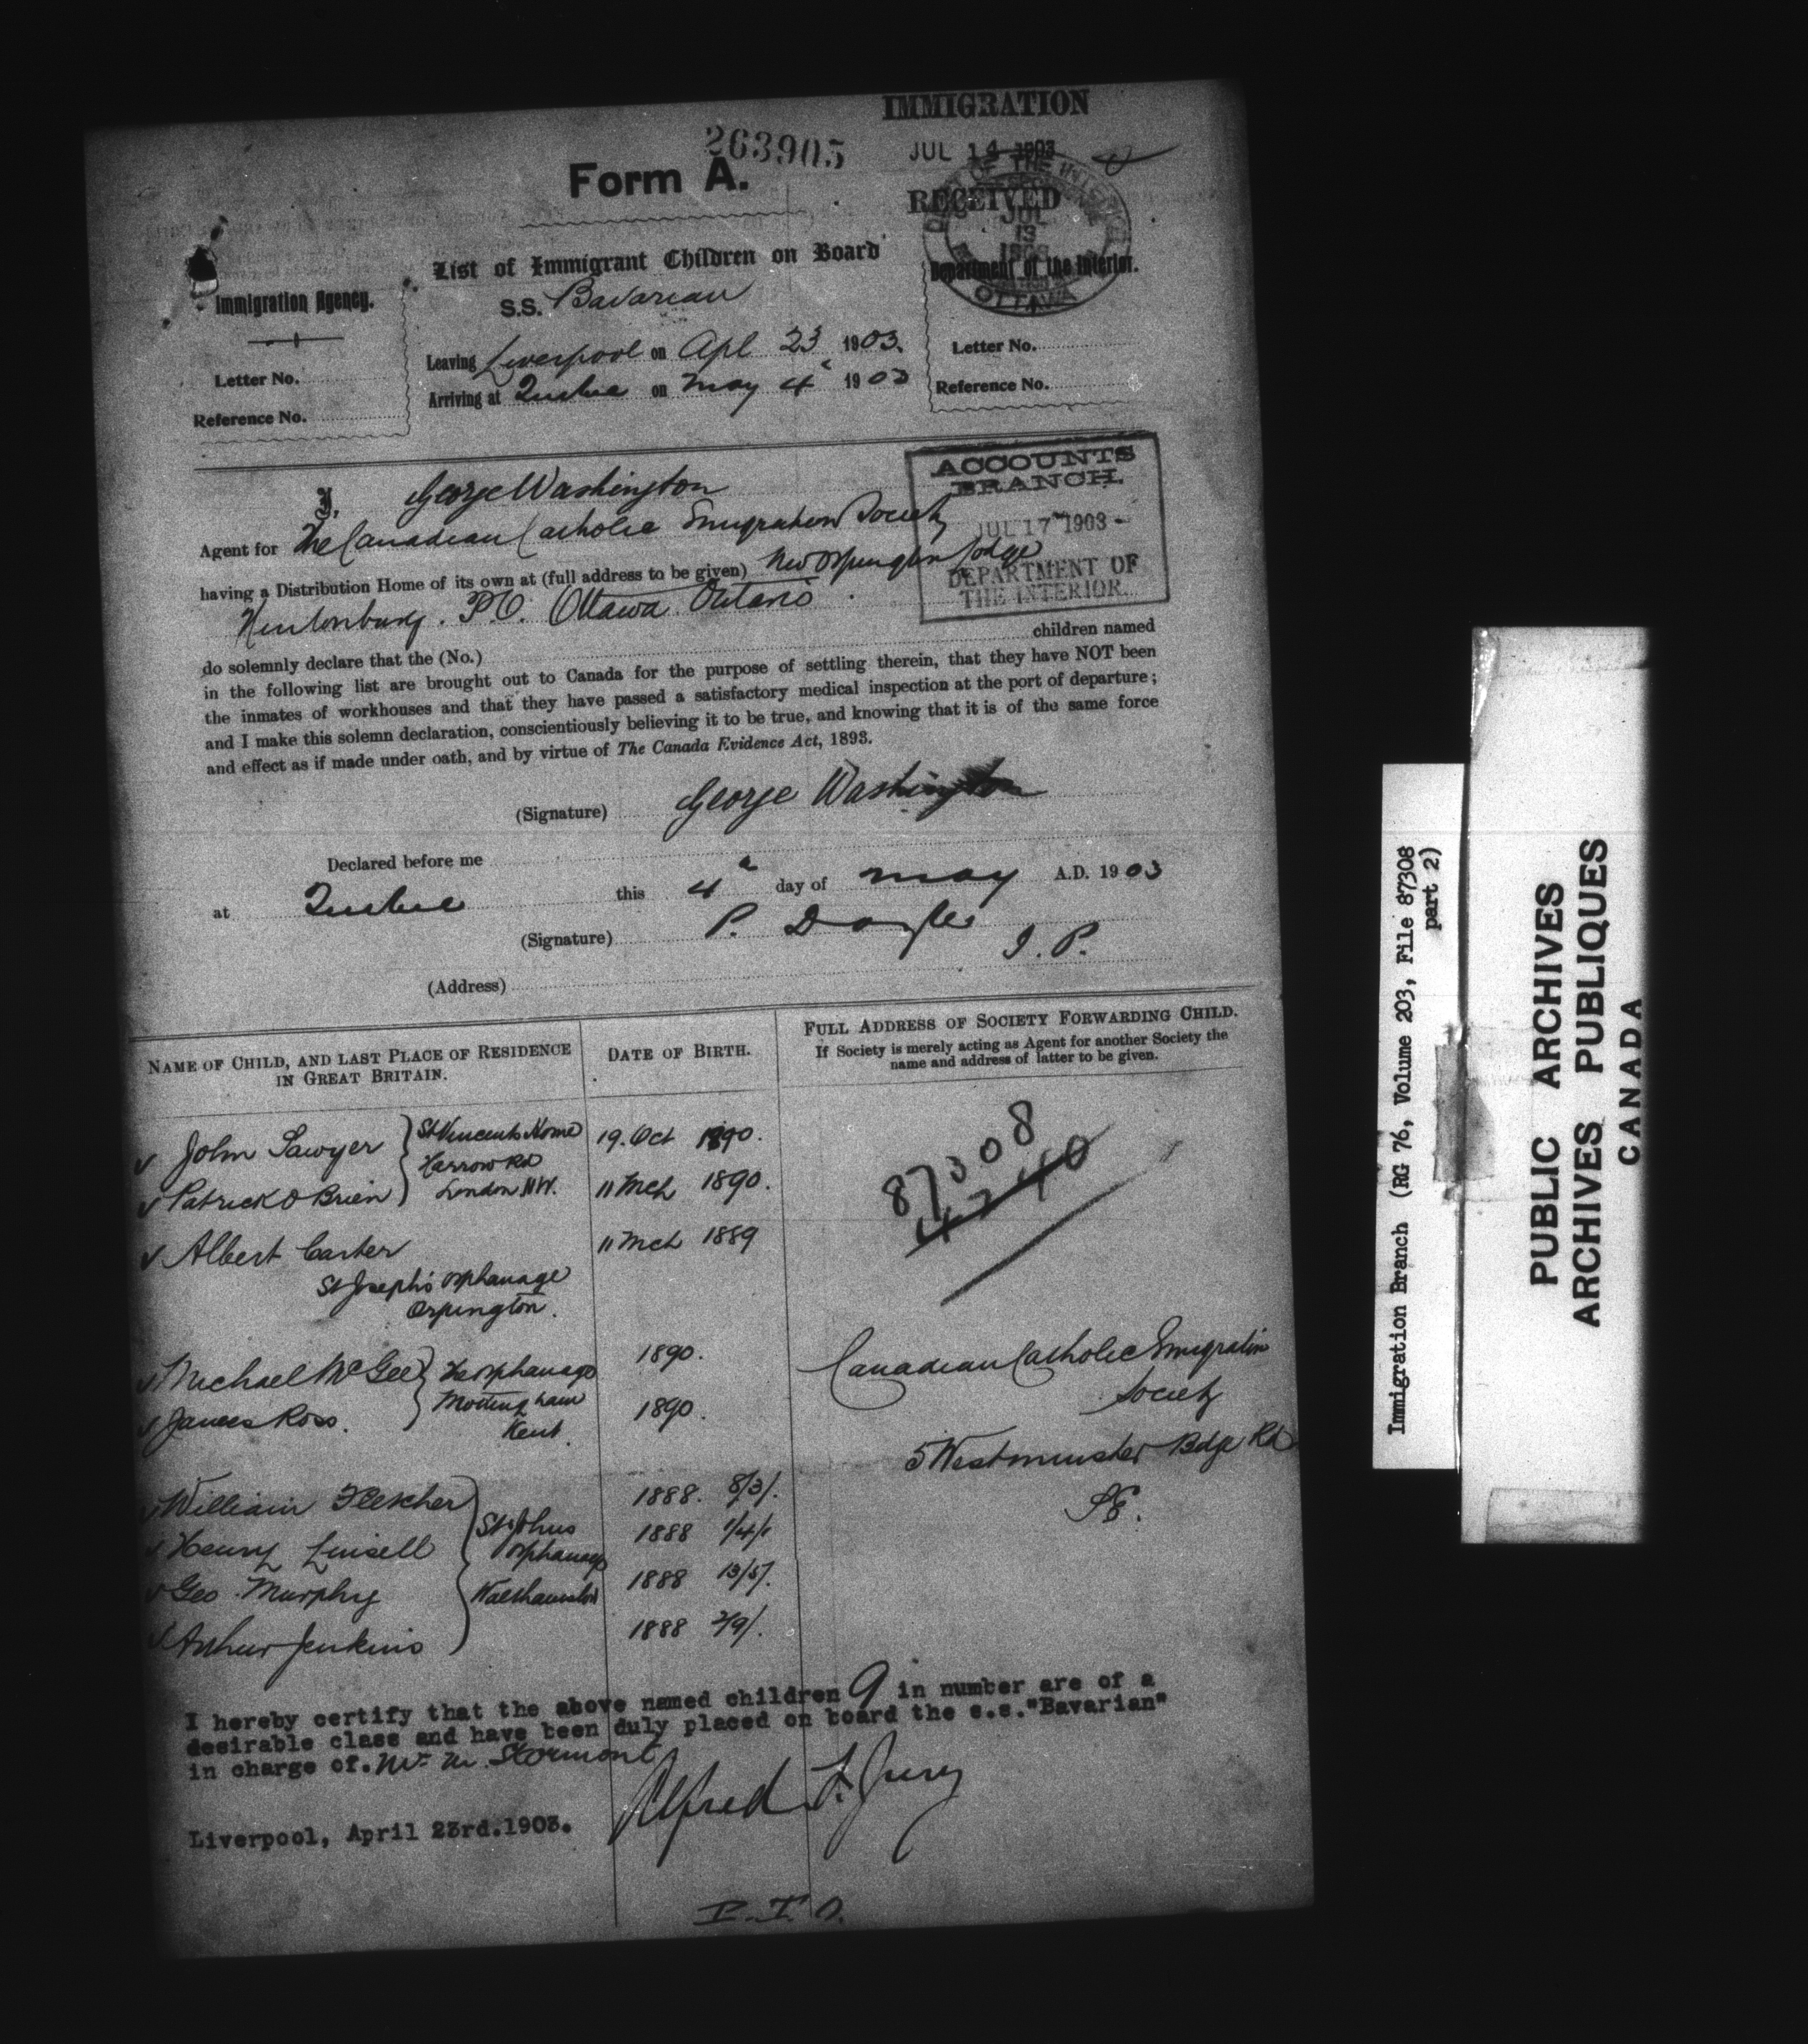 IMMIGRATION
263905
JUL 14 1903
Form A.
RECEIVED
DEPT OF THE INTERIOR
JUL
13
1903
OTTAWA
Department of the Interior.
List of Immigrant Children on Board
S.S. Bavarian
Immigration Agency.
Leaving Liverpool on Apl 23 1903.
Arriving at Quebec on May 4 1903
Letter No.
Reference No.
Letter No.
Reference No.
ACCOUNTS
BRANCH.
JUL 17 1903
DEPARTMENT OF
THE INTERIOR.
I, George Washington
Agent for The Canadian Catholic Emigration Society
having a Distribution Home of its own at (full address to be given) New Orpington Lodge
Hintonburg. P.O. Ottawa Ontario
do solemnly declare that the (No.) children named
in the following list are brought out to Canada for the purpose of settling therein, that they have NOT been
the inmates of workhouses and that they have passed a satisfactory medical inspection at the port of departure;
and I make this solemn declaration, conscientiously believing it to be true, and knowing that it is of the same force
and effect as if made under oath, and by virtue of The Canada Evidence Act, 1893.
(Signature) George Washington
Declared before me
at Quebec this 4 day of May A.D. 1903
(Signature) P. Doyle
J.P.
(Address)
NAME OF CHILD, AND LAST PLACE OF RESIDENCE
IN GREAT BRITAIN.
DATE OF BIRTH.
FULL ADDRESS OF SOCIETY FORWARDING CHILD.
If Society is merely acting as Agent for another Society the
name and address of latter to be given.
John Sawyer St Vincents Home 19. Oct 1890.
Harrow Rd
Patrick O Brien London W. 11 Mch 1890.
87308
4240
Albert Carter 11 Mch 1889
St Joseph's Orphanage
Orpington.
Michael McGee The Orphanage 1890.
Mottingham
James Ross. Kent. 1890.
Canadian Catholic Emigration
Society
5 Westminster Bdge Rd
S.E.
William Fletcher 1888. 8/3/.
St Johns
Henry Linsell Orphanage 1888 1/4/.
Geo. Murphy Walthamstow 1888 13/5/.
Arthur Jenkins 1888 2/9/.
I hereby certify that the above named children 9 in number are of a
desirable class and have been duly placed on board the s.s."Bavarian"
in charge of. Mr. M. Stormont
Alfred F. Jury
Liverpool, April 23rd.1903.
P.T.O.
Immigration Branch (RG 76, Volume 203, File 87308
part 2)
PUBLIC ARCHIVES
ARCHIVES PUBLIQUES
CANADA